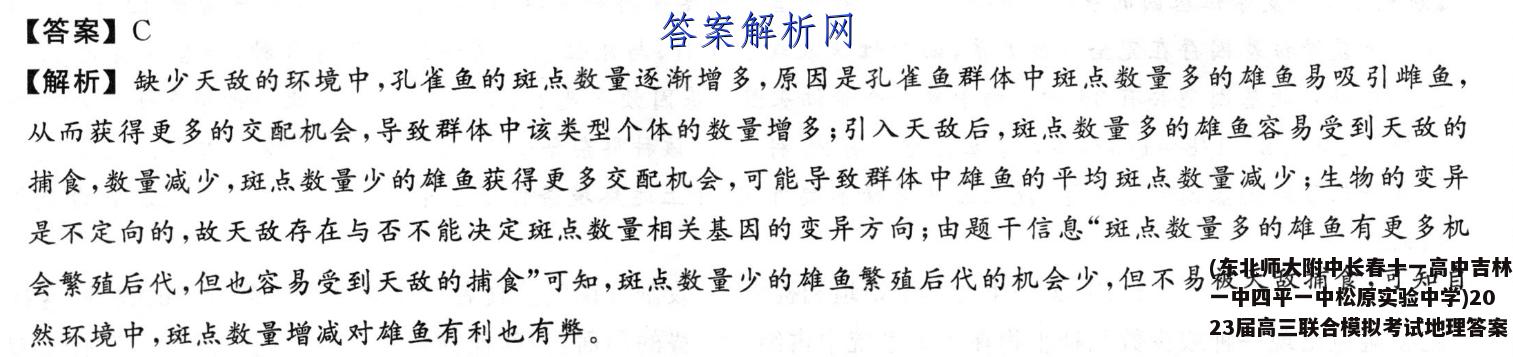 【答案】C
答案解析网
【解析】缺少天敌的环境中,孔雀鱼的斑点数量逐渐增多,原因是孔雀鱼群体中斑点数量多的雄鱼易吸引雌鱼,
从而获得更多的交配机会,导致群体中该类型个体的数量增多;引入天敌后,斑点数量多的雄鱼容易受到天敌的
捕食,数量减少,斑点数量少的雄鱼获得更多交配机会,可能导致群体中雄鱼的平均斑点数量减少;生物的变异
是不定向的,故天敌存在与否不能决定斑点数量相关基因的变异方向;由题干信息“斑点数量多的雄鱼有更多机
会繁殖后代,但也容易受到天敌的捕食”可知,斑点数量少的雄鱼繁殖后代的机会少,但不易被天敌捕食,可知自
然环境中,斑点数量增减对雄鱼有利也有弊。
(东北师大附中长春十一高中吉林
一中四平一中松原实验中学)20
23届高三联合模拟考试地理答案